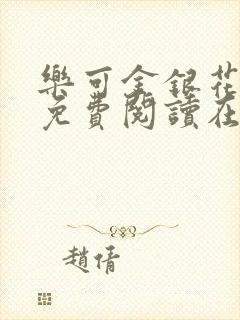 樂可金銀花
免費閱讀在
趙倩